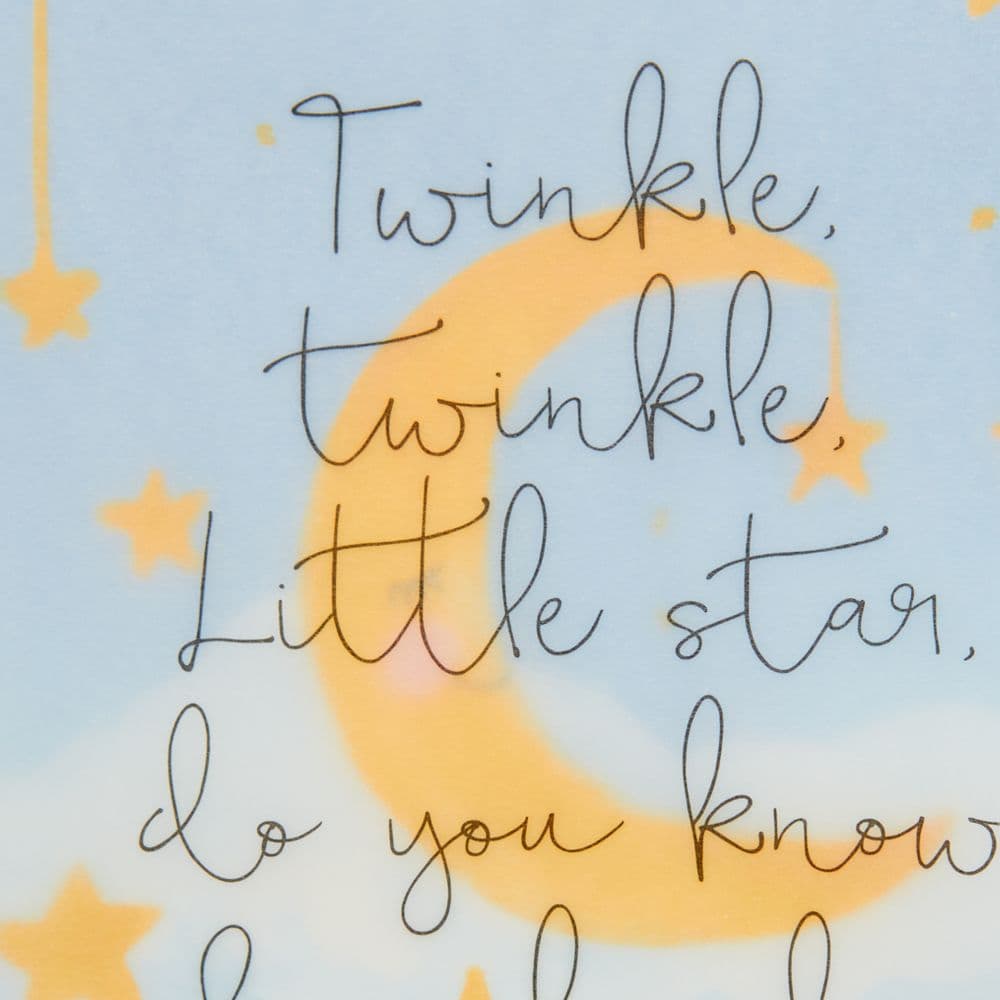 Twinkle,
twinkle,
Little star,
do you know